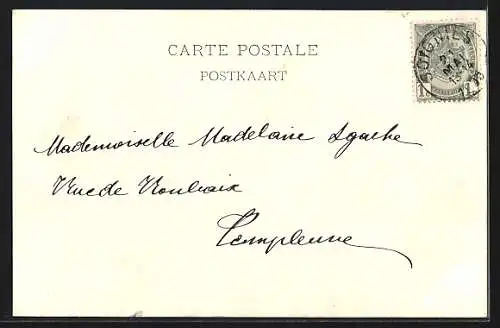 CARTE POSTALE
POSTKAART
SOIGNIES
21
MAI
1
Mademoiselle Madelaine Agache
Rue de Roubaix
Templeuve